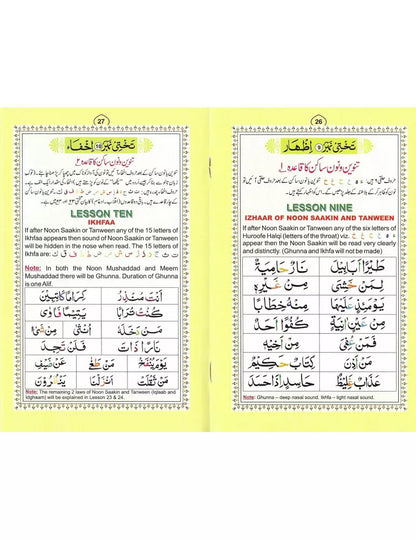 26
تختی نمبر 9 اِظْهَار
تنوین و نون ساکن کا قاعدہ ۱
LESSON NINE
IZHAAR OF NOON SAAKIN AND TANWEEN
If after Noon Saakin or Tanween any of the six letters of
Huroofe Halqi (letters of the throat) viz. ء ه ع ح غ خ
appear then the Noon Saakin will be read very clearly
and distinctly. (Ghunna and Ikhfa will not be made)
طَيْرًا اَبَابِيْلَ نَارٌ حَامِيَةٌ
لِمَنْ خَشِيَ مِنْ غَيْرِهٖ
يَوْمَئِذٍ عَلَيْهَا مِنْهُ خِطَابًا
مِنْ عَيْنٍ اٰنِيَةٍ كُفُوًا اَحَدٌ
فَمَنْ عُفِيَ مِنْ اَخِيْهِ
مَنْ اَذِنَ كِتَابٌ حَكِيْمٌ
عَذَابٌ غَلِيْظٌ حَاسِدٍ اِذَا حَسَدَ
Note: Ghunna – deep nasal sound. Ikhfa – light nasal sound.
27
تختی نمبر 10 اِخْفَاء
تنوین و نون ساکن کا قاعدہ ۲
LESSON TEN
IKHFAA
If after Noon Saakin or Tanween any of the 15 letters of
Ikhfaa appears then sound of Noon Saakin or Tanween
will be hidden in the nose when read. The 15 letters of
Ikhfa are: ت ث ج د ذ ز س ش ص ض ط ظ ف ق ك
Note: In both the Noon Mushaddad and Meem
Mushaddad there will be Ghunna. Duration of Ghunna
is one Alif.
اَنْتَ مُنْذِرُ كِرَامًا كَاتِبِيْنَ
كُنْتُ تُرَابًا يَتِيْمًا فَاٰوٰى
مَنْ دَخَلَهٗ اُنْثٰى
نَارًا ذَاتَ فَلَنْ تَجِدَ
يَوْمَ يُنْفَخُ عَنْ ضَيْفِ
مَنْ ثَقُلَتْ اَنْزَلْنَا يَنْظُرُوْنَ
Note: The remaining 2 laws of Noon Saakin and Tanween (Iqlaab and
Idghaam) will be explained in Lesson 23 & 24.